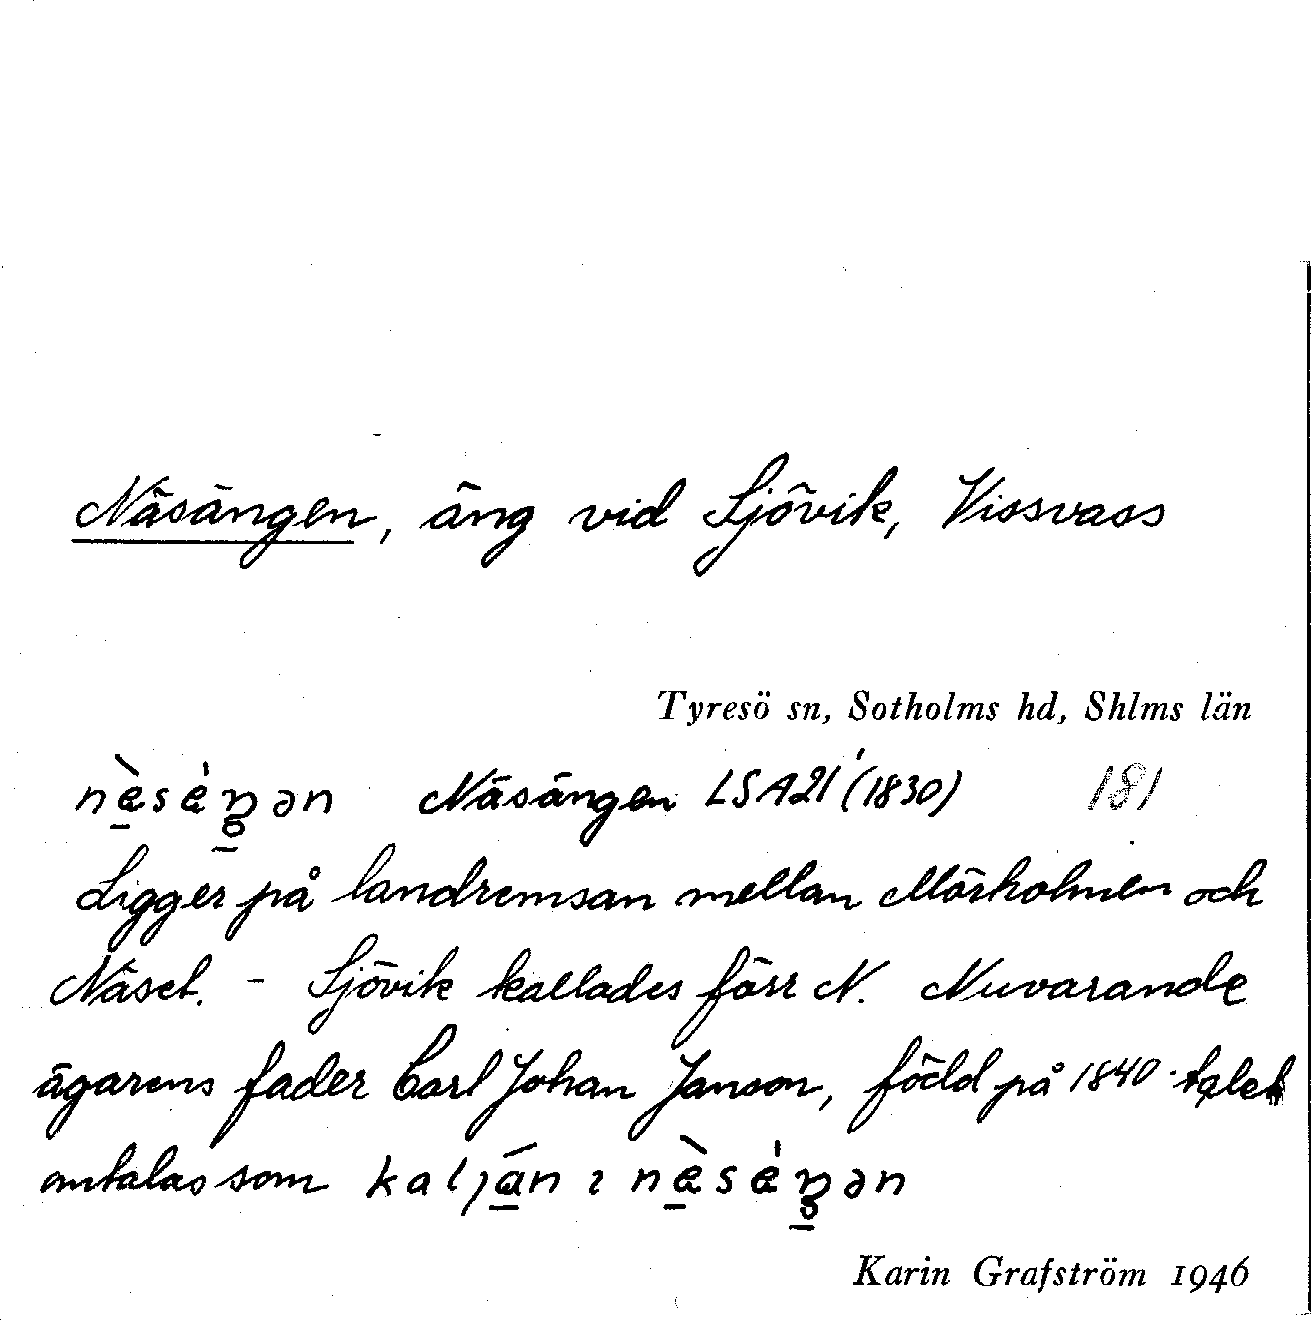 Näsängen, äng vid Sjövik, Vissvass
Tyresö sn, Sotholms hd, Shlms län
nὲsέŋən Näsängen LSA21 (1830) 181
Ligger på landremsan mellan Mörholmen och
Näset. - Sjövik kallades förr N. Nuvarande
ägarens fader Carl Johan Janson, född på 1840-talet
omtalas som kaljan ı nὲsέŋən
Karin Grafström 1946